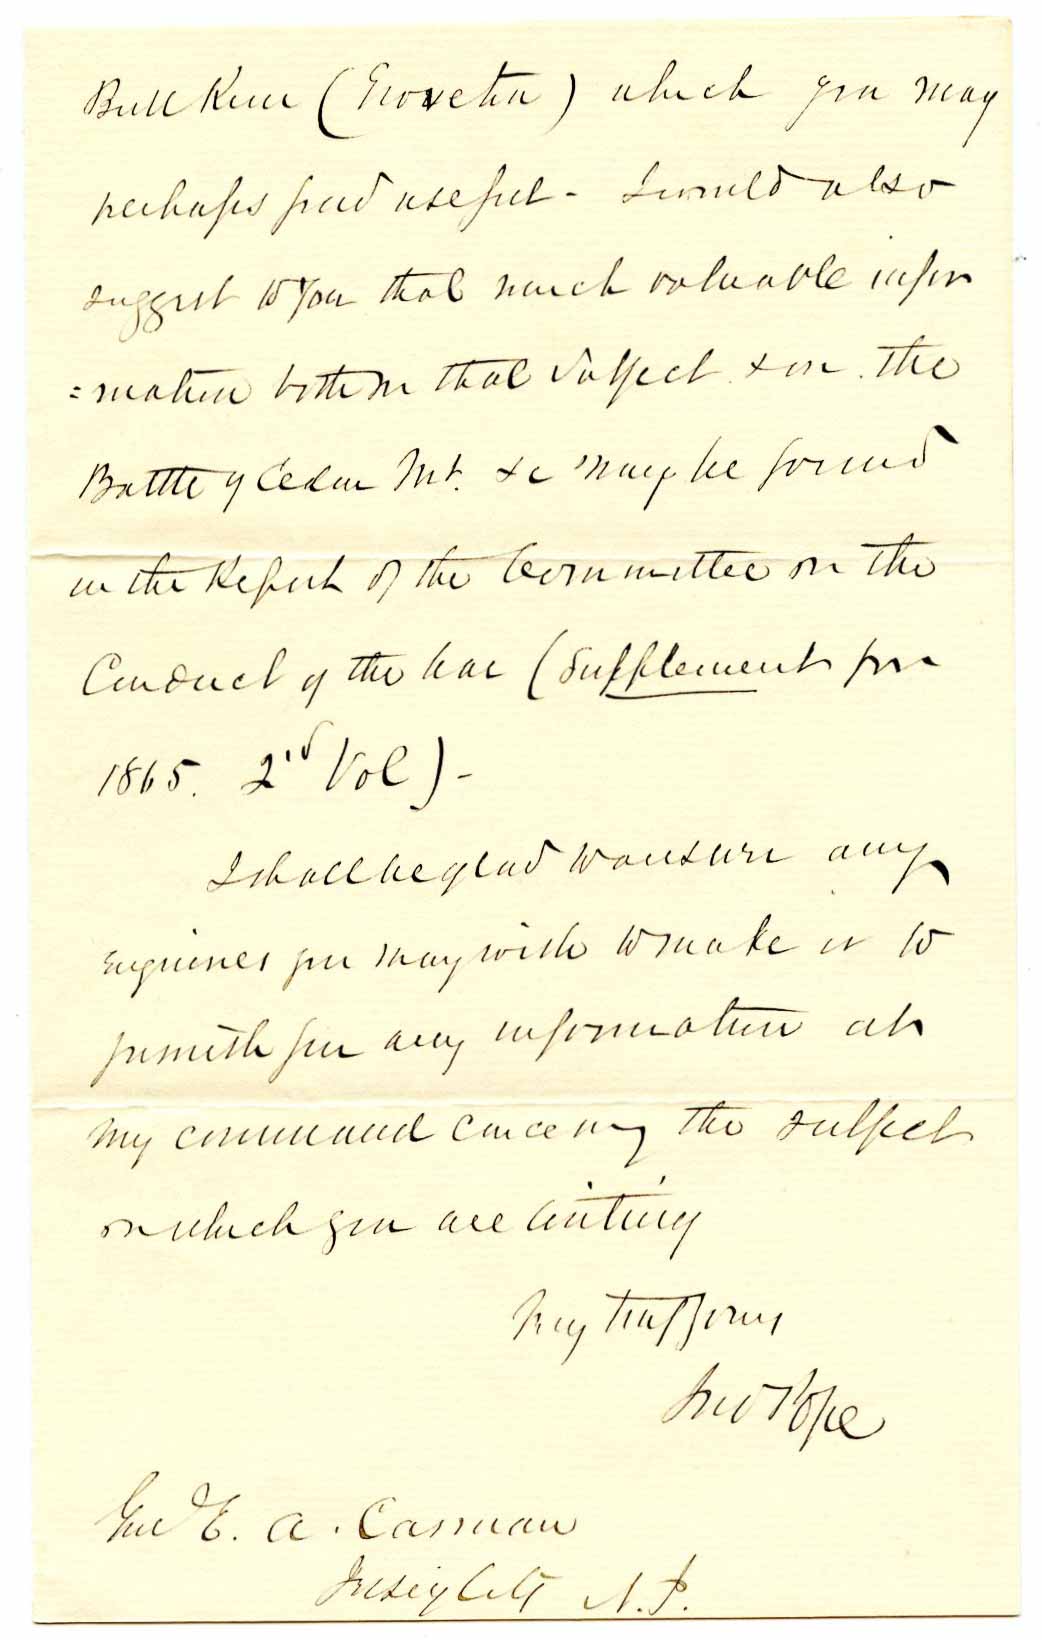 Bull Run (Groveton) which you may
perhaps find useful - I would also
suggest to you that much valuable infor
=mation both on that subject & on the
Battle of Cedar Mt. &c may be found
in the Report of the Committee on the
Conduct of the War (Supplement for
1865. 2nd Vol) -
I shall be glad to answer any
enquiries you may wish to make or to
furnish you any information at
my command concerning the subject
on which you are writing
Very truly yours
Jno Pope
Genl E. A. Carman
Jersey City N. J.